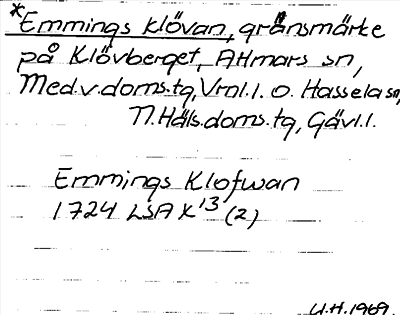 *Emmings Klövan, gränsmärke
på Klövberget, Attmars sn,
Med.v.doms.tg, Vrnl.l. o. Hassela sn,
N.Häls.doms.tg, Gävl.l.
Emmings Klofwan
1724 LSA X¹³ (2)
U.H. 1969.